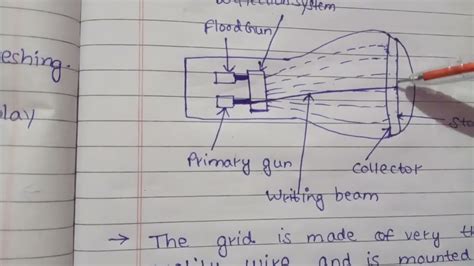 system
Flood Gun
eshing.
lay
Primary gun
Collector
Writing beam
→ The grid is made of very
wire and is mounted